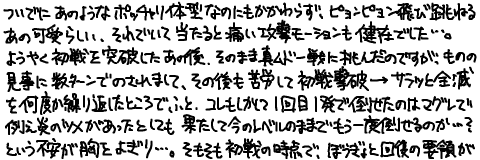 ついでにあのようなポッチャリ体型なのにもかかわらず、ピョンピョン飛び跳ねる
あの可愛らしい、それでいて当たると痛い攻撃モーションも健在でした…。
ようやく初戦を突破したあの後、そのまま真ムドー戦に挑んだのですが、ものの
見事に数ターンでのされまして、その後も苦労して初戦撃破→サラッと全滅
を何度か繰り返したところで、ふと、コレもしかして1回目1発で倒せたのはマグレでして
例え炎のツメがあったとしても果たして今のレベルのままでもう一度倒せるのか…そ
という不安が胸をよぎり…。そもそも初戦の時点で、ぼうぎょと回復の要領が